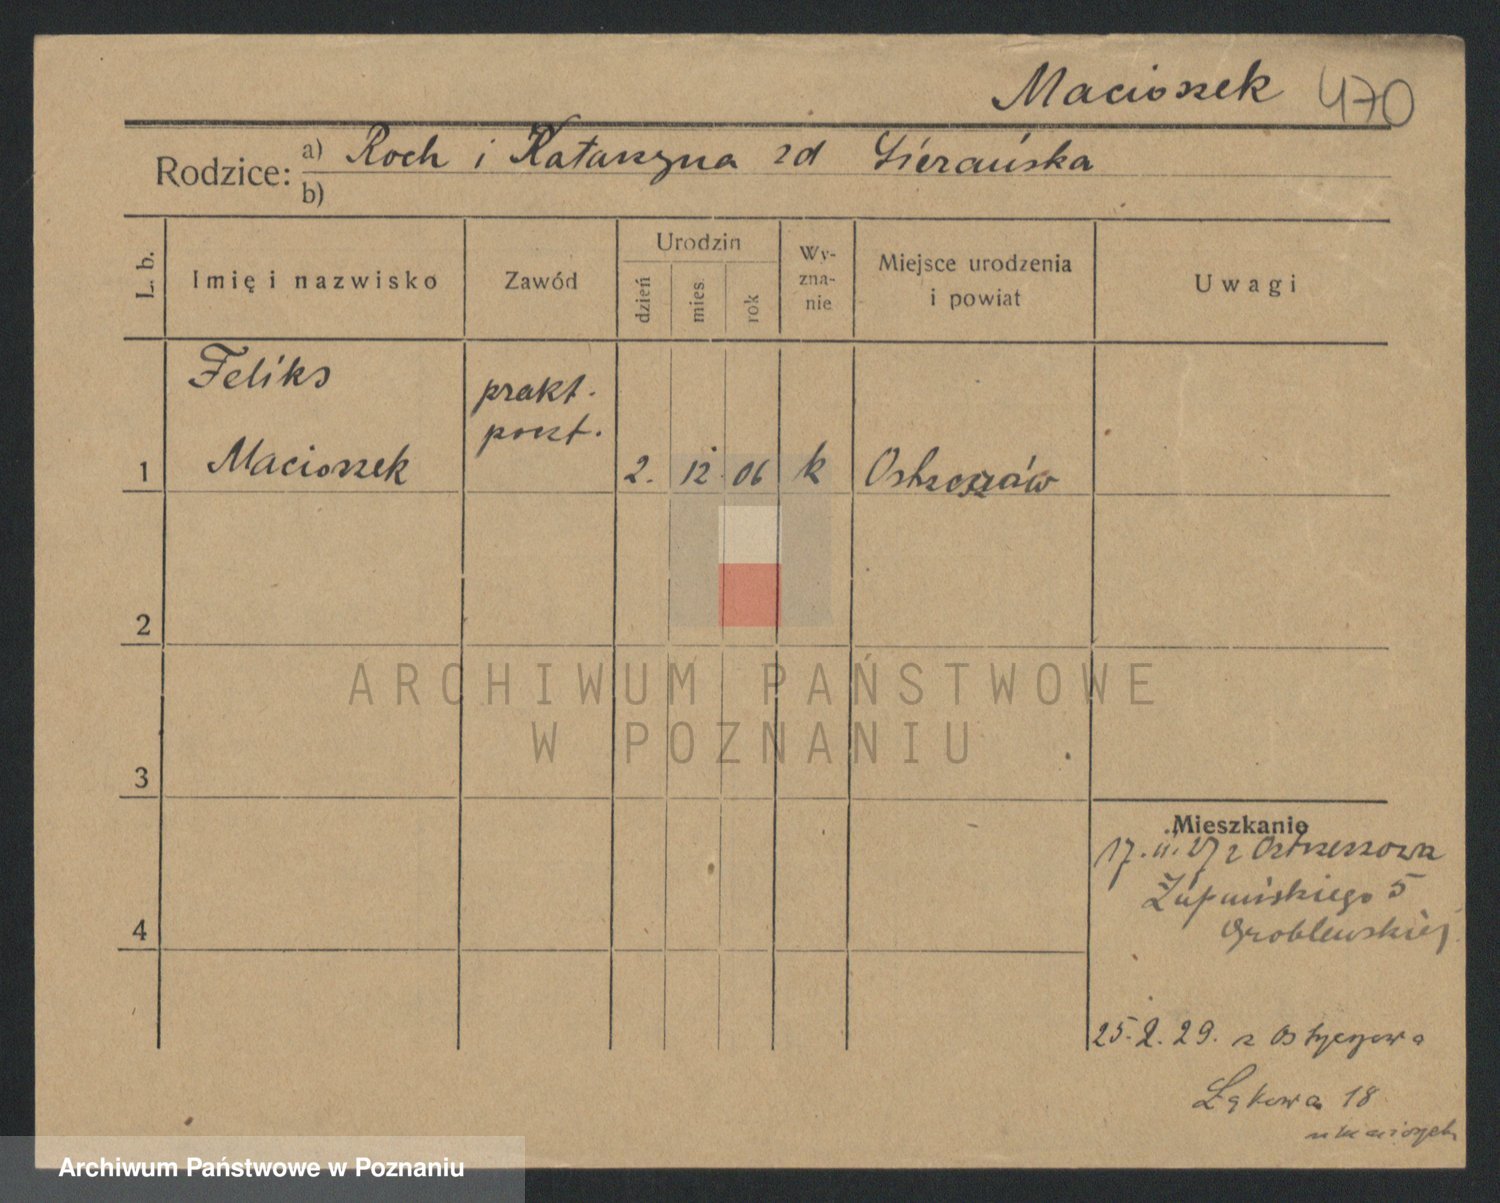 Macioszek 470
Rodzice: a) Roch i Katarzyna zd Sierańska
b)
L. b.
Imię i nazwisko
Zawód
Urodzin
dzień
mies.
rok
Wy-
zna-
nie
Miejsce urodzenia
i powiat
Uwagi
Feliks
prakt.
poczt.
1 Macioszek 2. 12 06 k Ostrzeszów
2
ARCHIWUM PAŃSTWOWE
W POZNANIU
3
Mieszkanie
17. 11. 27 z Ostrzeszowa
Żupańskiego 5
Groblewskiej
4
25. 2. 29. z Ostrzeszowa
Łąkowa 18
Archiwum Państwowe w Poznaniu